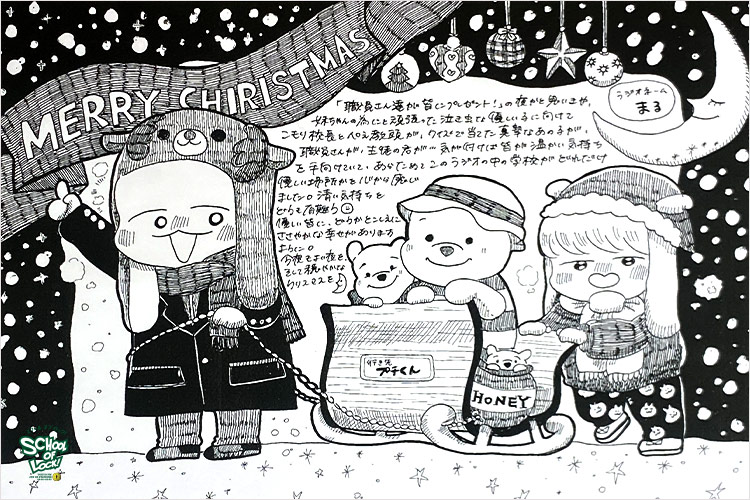 MERRY CHIRISTMAS
ラジオネーム
まる
「職員さん達が皆にプレゼント！」の夜かと思いきや、
妹ちゃんの為にと頑張った泣き虫な優しい子に向けて
こもり校長とぺえ教頭が、クイズで当てた真摯なあの子が、
職員さんが、生徒の君が…気が付けば皆が温かい気持ち
を手向けていて、あらためてこのラジオの中の学校がどれだけ
優しい場所かを心から感じ
ました。清い気持ちを
どうも有難う
優しい皆に、どうかとこしえに
ささやかな幸せがあります
ように。
今夜もよい夜を、
そして穏やかな
クリスマスを
行き先
プチくん
HONEY
SCHOOL
OF
LOCK!